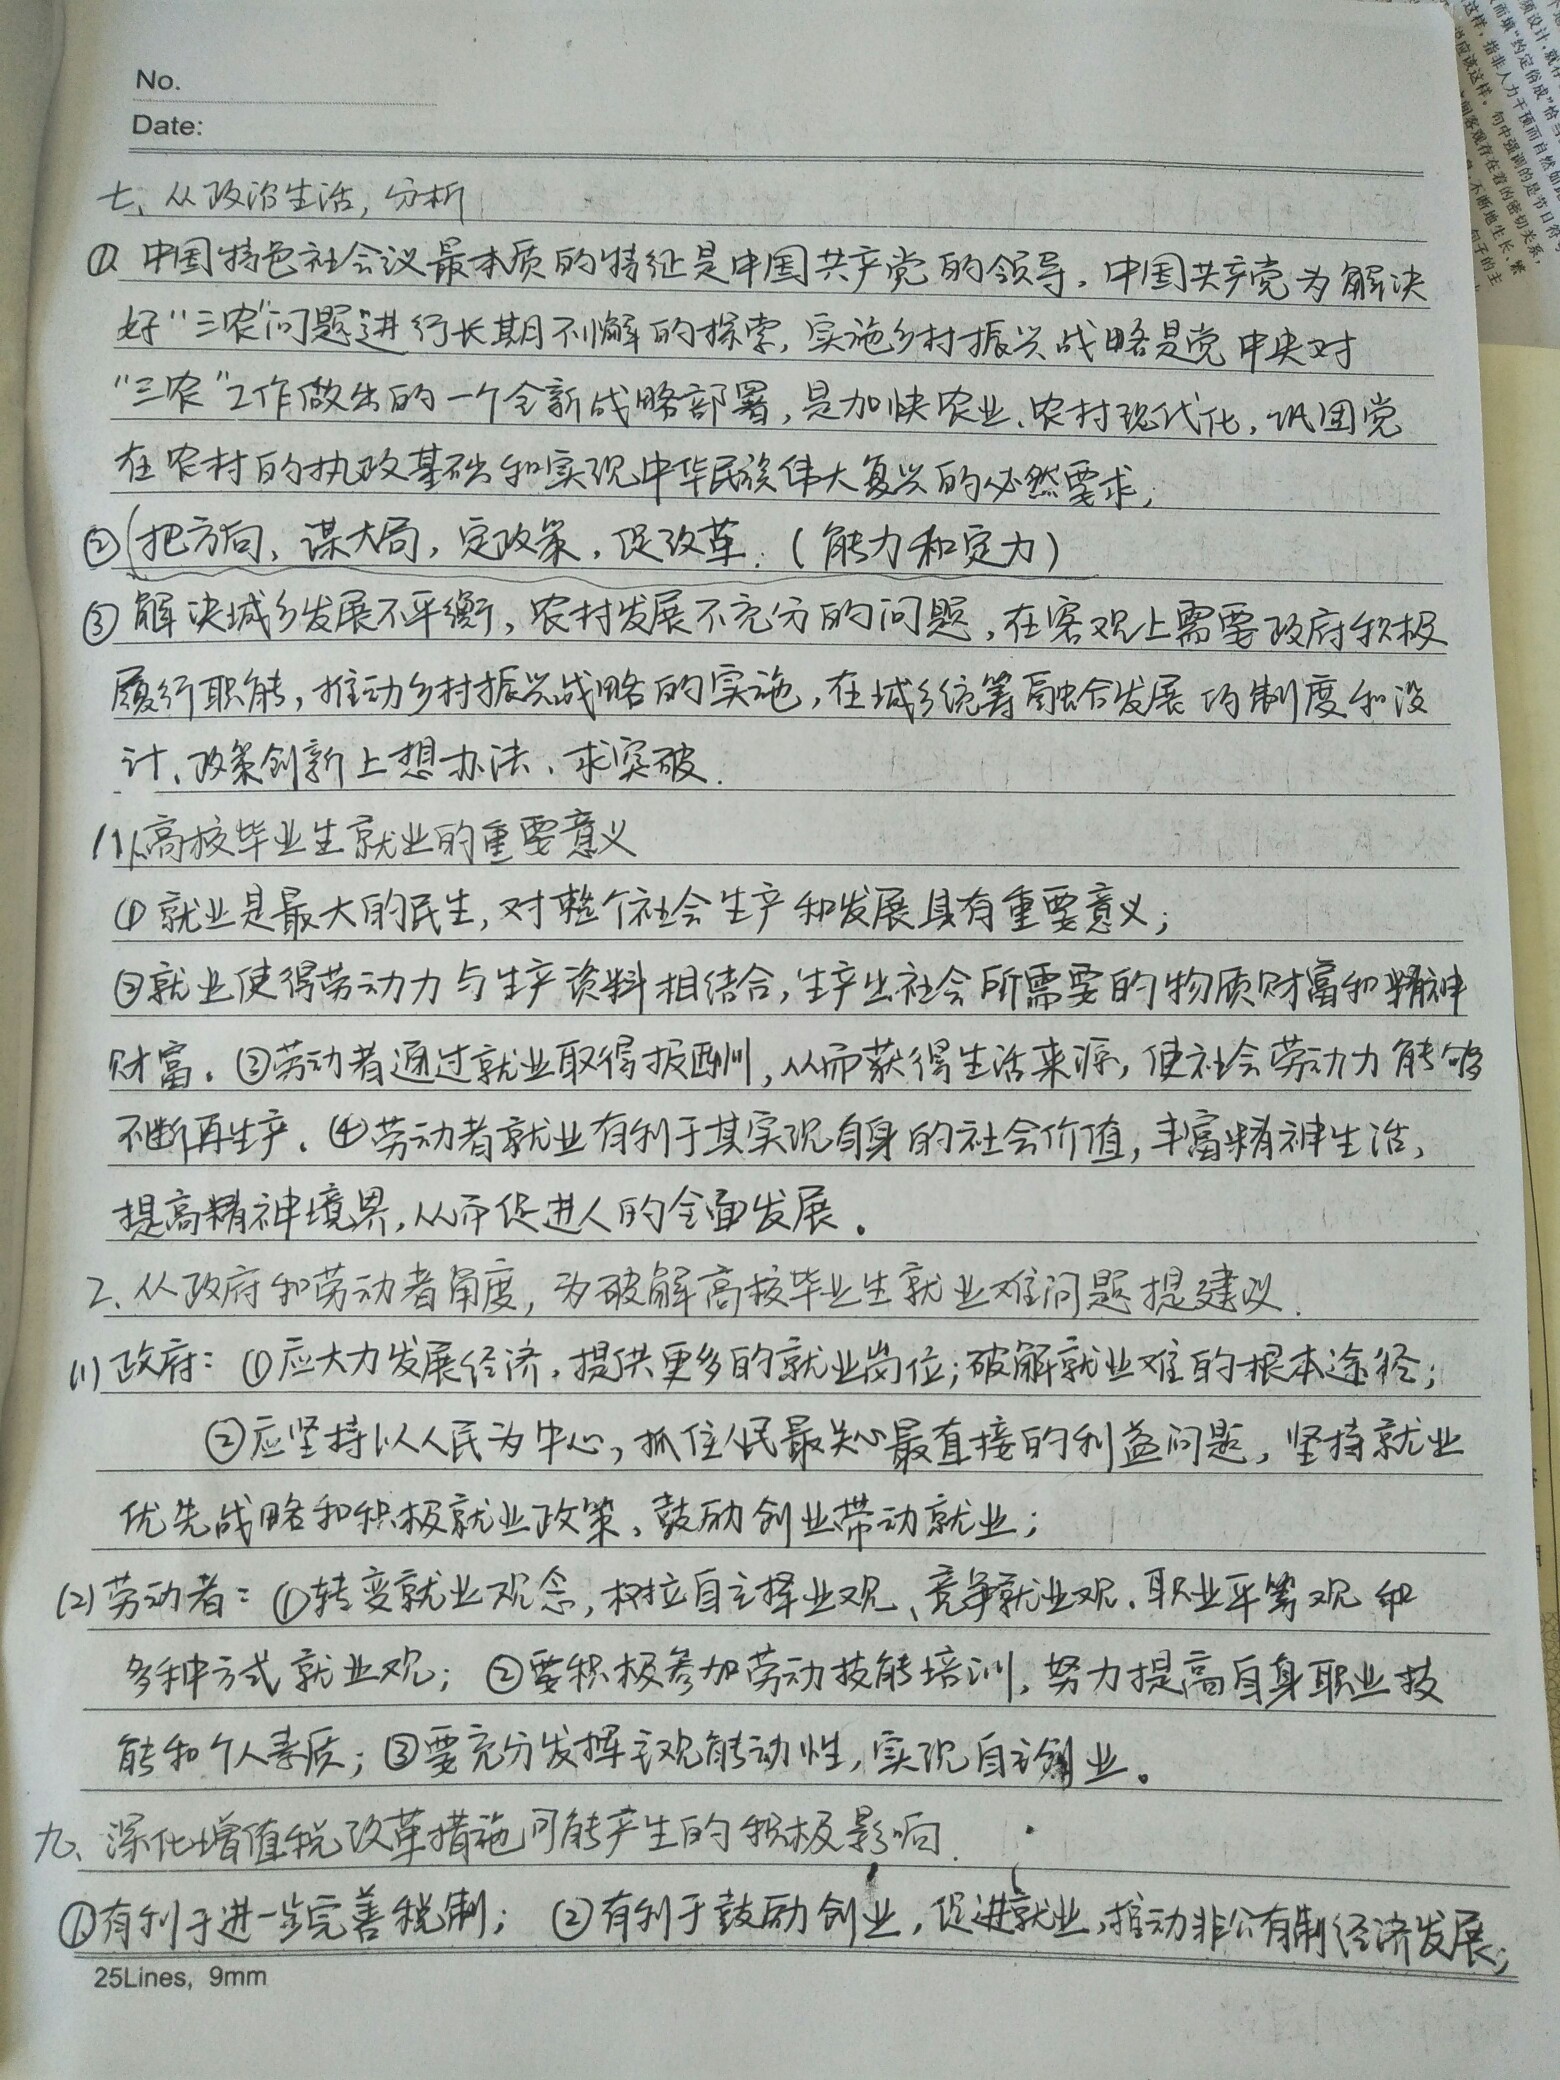 No.
Date:
七、从政治生活,分析
①中国特色社会议最本质的特征是中国共产党的领导,中国共产党为解决
好"三农"问题进行长期不懈的探索,实施乡村振兴战略是党中央对
"三农"工作做出的一个全新战略部署,是加快农业、农村现代化,巩固党
在农村的执政基础和实现中华民族伟大复兴的必然要求;
②(把方向、谋大局,定政策,促改革.(能力和定力)
③解决城乡发展不平衡,农村发展不充分的问题,在客观上需要政府积极
履行职能,推动乡村振兴战略的实施,在城乡统筹融合发展的制度和设
计、政策创新上想办法、求突破.
八1.高校毕业生就业的重要意义
①就业是最大的民生,对整个社会生产和发展具有重要意义;
②就业使得劳动力与生产资料相结合,生产出社会所需要的物质财富和精神
财富.③劳动者通过就业取得报酬,从而获得生活来源,使社会劳动力能够
不断再生产.④劳动者就业有利于其实现自身的社会价值,丰富精神生活,
提高精神境界,从而促进人的全面发展。
2.从政府和劳动者角度,为破解高校毕业生就业难问题提建议.
(1)政府:①应大力发展经济,提供更多的就业岗位;破解就业难的根本途径;
②应坚持以人民为中心,抓住人民最关心最直接的利益问题,坚持就业
优先战略和积极就业政策,鼓励创业带动就业;
(2)劳动者:①转变就业观念,树立自主择业观、竞争就业观、职业平等观和
多种方式就业观;②要积极参加劳动技能培训,努力提高自身职业技
能和个人素质;③要充分发挥主观能动性,实现自主创业。
九、深化增值税改革措施可能产生的积极影响.
①有利于进一步完善税制;②有利于鼓励创业,促进就业,推动非公有制经济发展;
25Lines, 9mm